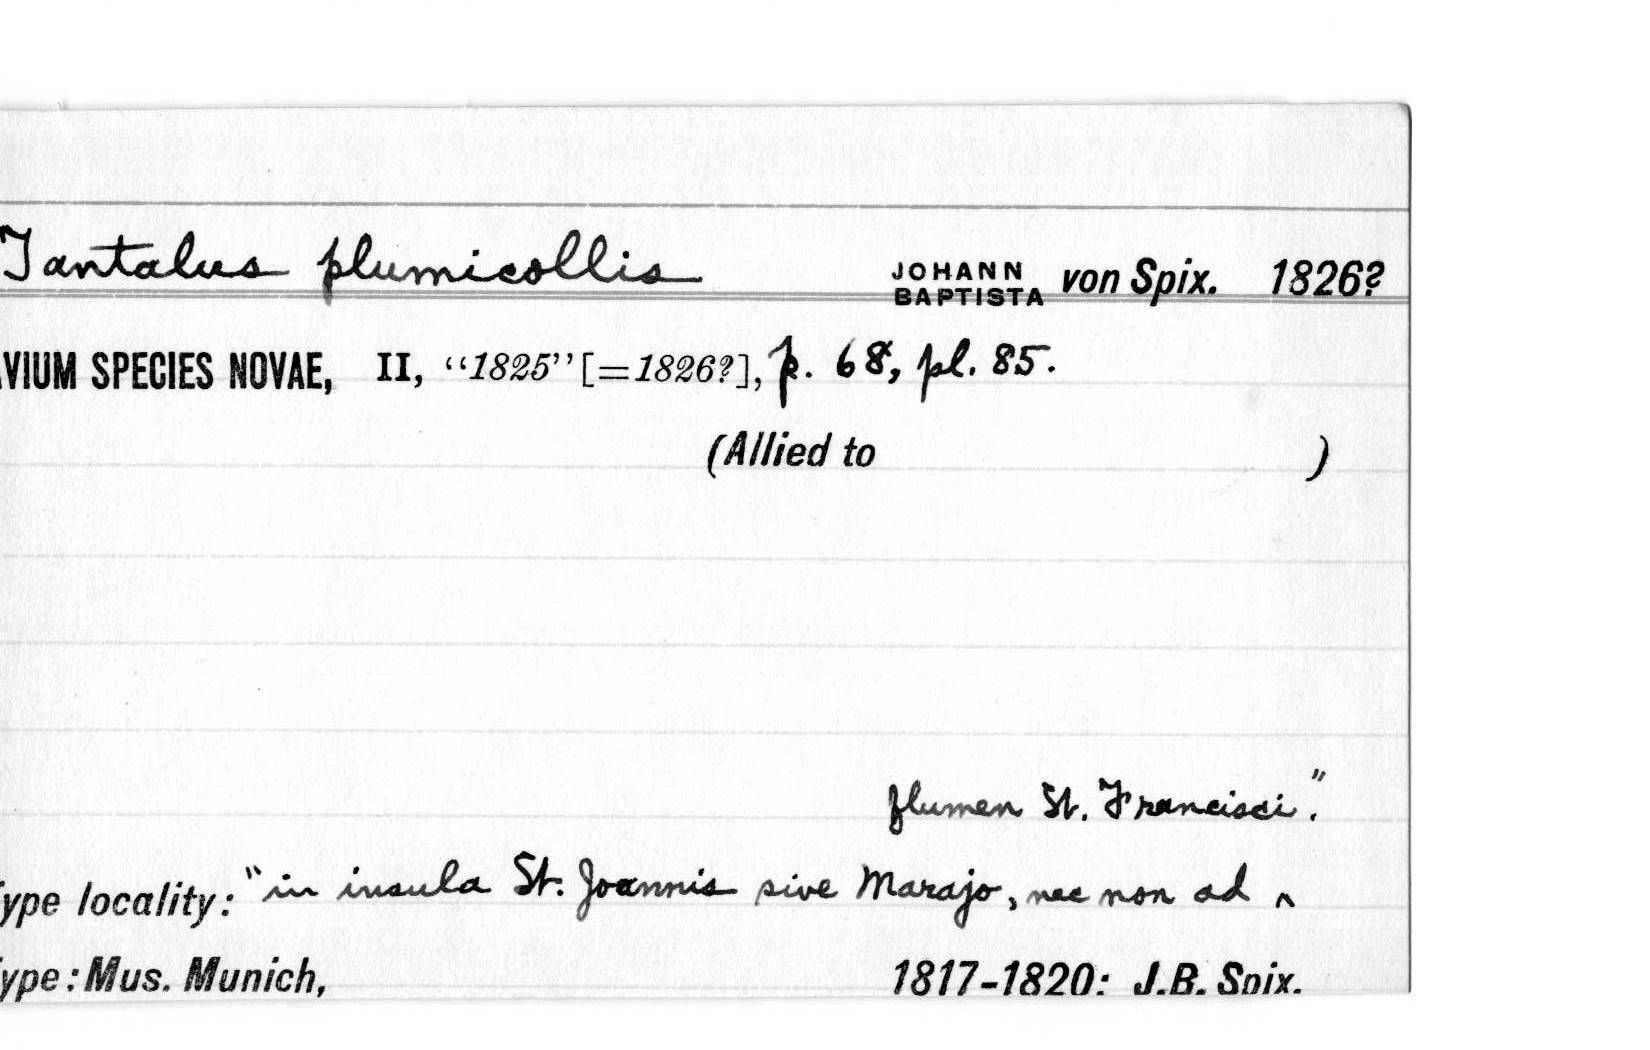 Tantalus plumicollis JOHANN BAPTISTA von Spix. 1826?
AVIUM SPECIES NOVAE, II, "1825" [=1826?], p. 68, pl. 85.
(Allied to )
flumen St. Francisci."
Type locality: "in insula St. Joannis sive Marajo, nec non ad ^
Type: Mus. Munich, 1817-1820: J.B. Spix.